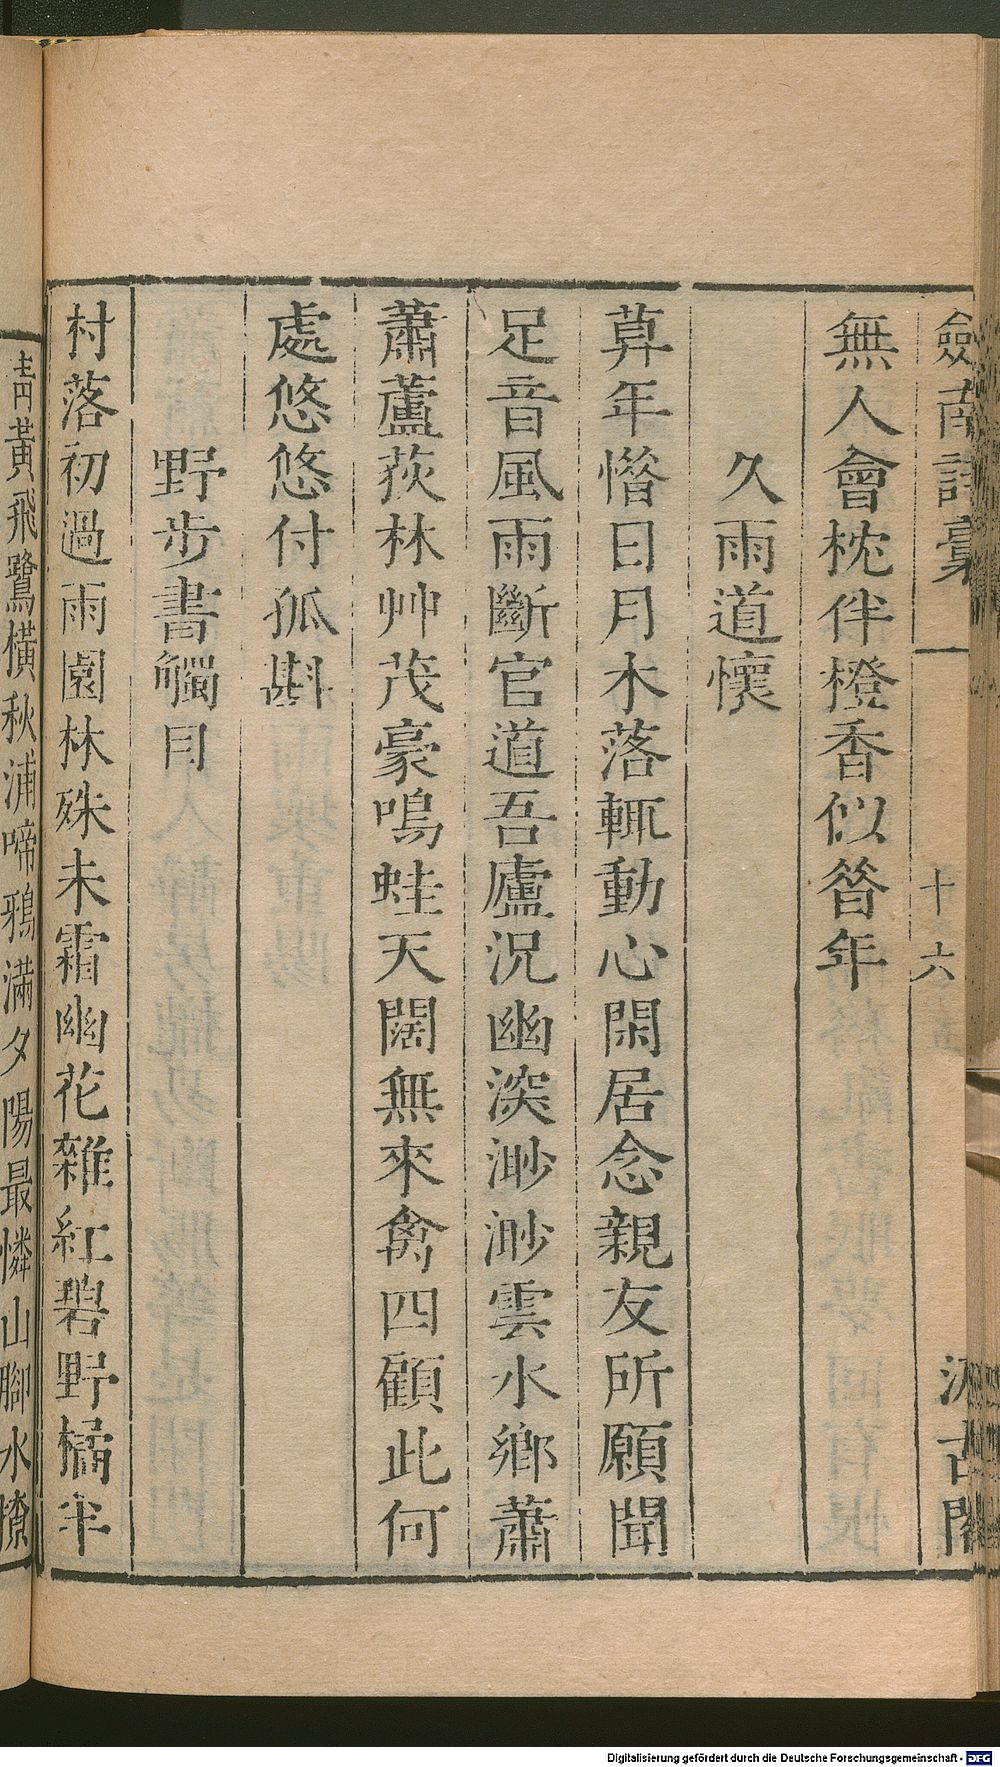 劍南詩稾 十六 汲古閣
無人會枕伴橙香似昝年
久雨道懷
算年惜日月木落輒動心閑居念親友所願聞
足音風雨斷官道吾廬況幽深渺渺雲水鄉蕭
蕭蘆荻林艸茂豪鳴蛙天闊無來禽四顧此何
處悠悠付孤斟
野步書觸目
村落初過雨園林殊未霜幽花雜紅碧野橘半
青黃飛鷺橫秋浦啼鴉滿夕陽最憐山腳水撩
Digitalisierung gefördert durch die Deutsche Forschungsgemeinschaft - DFG